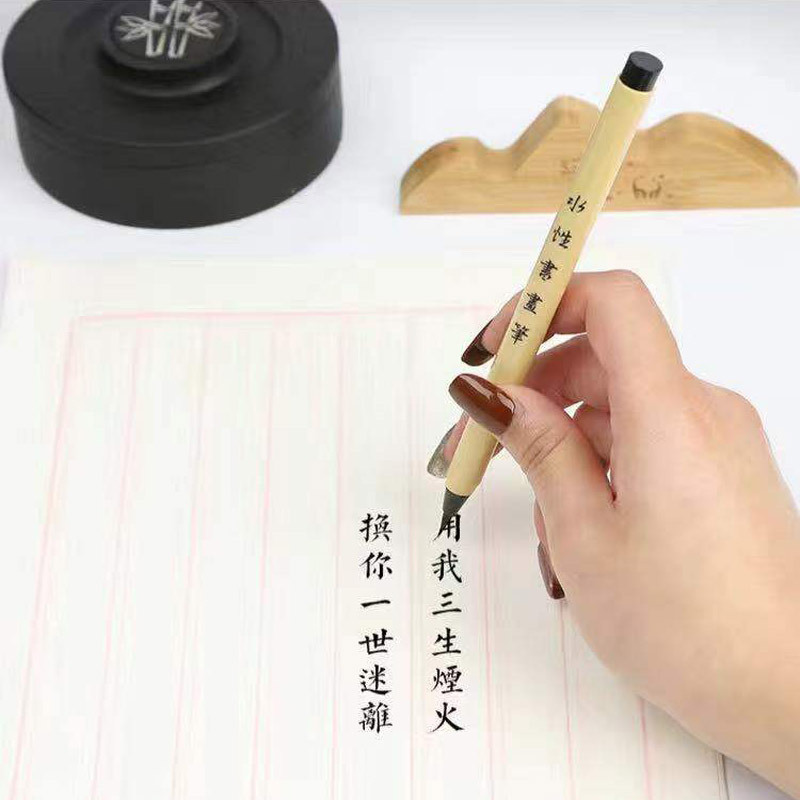 水性書畫筆
用我三生煙火
換你一世迷離